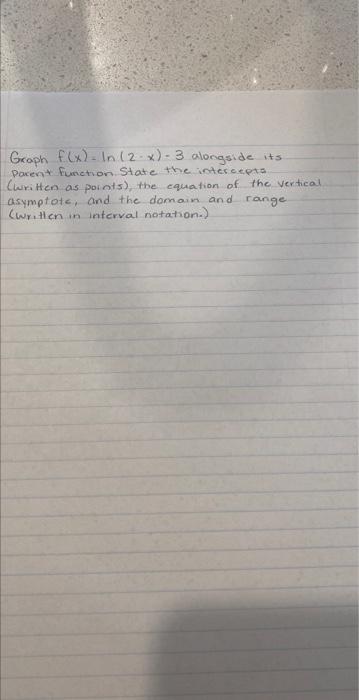 Graph f(x) = ln (2 - x) - 3 alongside its
parent function. State the intercepts
(written as points), the equation of the vertical
asymptote, and the domain and range
(written in interval notation.)